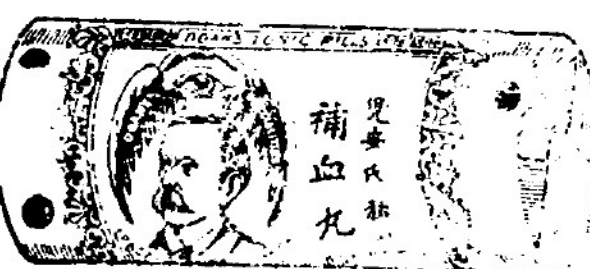 DOANS TONIC PILLS
兜安氏秘
補血丸